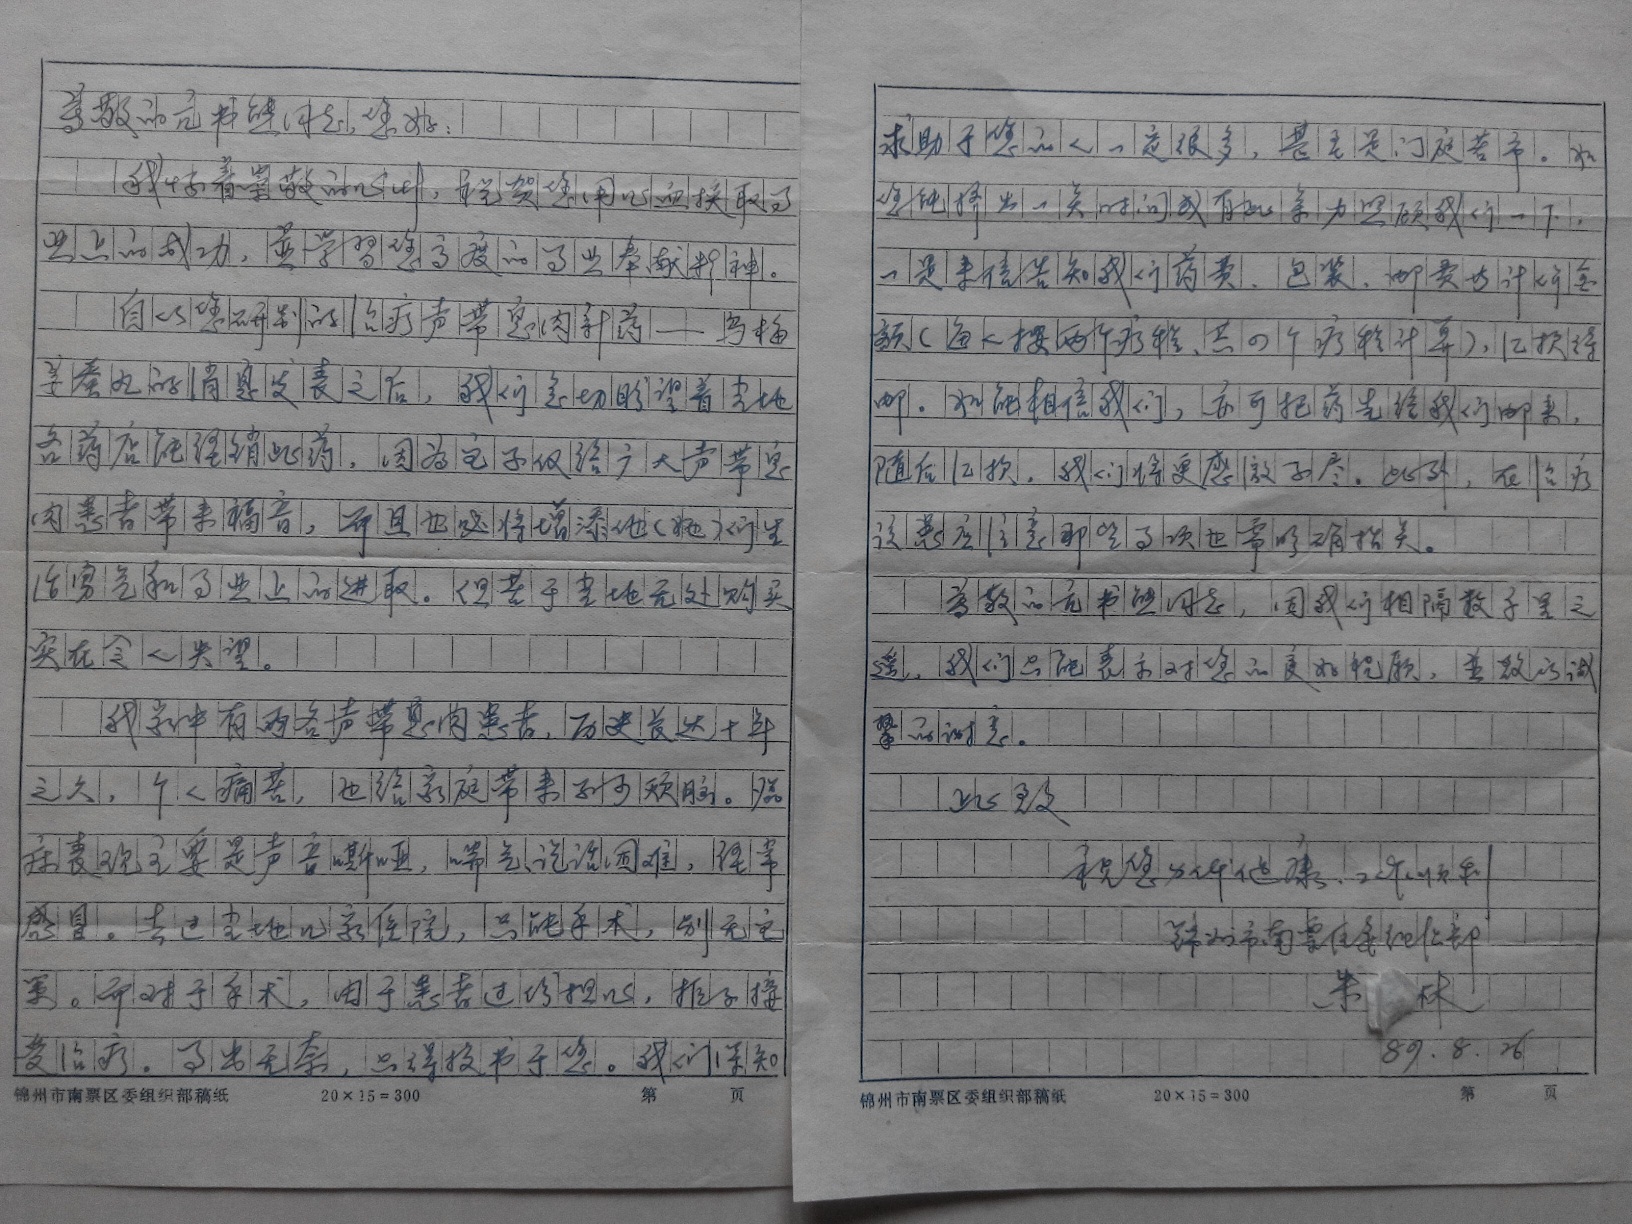 尊敬的元书熊同志，您好：
我怀着崇敬的心情，祝贺您用心血换取了事
业上的成功，并学习您高度的事业奉献精神。
自从您研制的治疗声带息肉新药——乌梅
丸的消息发表之后，我们急切盼望着当地
各药店能经销此药，因为它不仅给广大声带息
肉患者带来福音，而且也必将增添他（她）们生
活勇气和事业上的进取。但苦于当地无处购买
实在令人失望。
我家中有两名声带息肉患者，历史长达十年
之久，个人痛苦，也给家庭带来不少烦脑。临
床表现主要是声音嘶哑，喘气、说话困难，经常
感冒。去过当地几家医院，只能手术，别无它
策。而对于手术，由于患者过份担心，拒不接
受治疗。事出无奈，只得投书于您。我们深知
求助于您的人一定很多，甚至是门庭若市。如
您能挤出一点时间或有些余力照顾我们一下，
一是来信告知我们药费、包装、邮费共计价金
额（每人按两个疗程、共四个疗程计算），汇款待
邮。如能相信我们，亦可把药先给我们邮来，
随后汇款，我们将更感激不尽。此外，在治疗
该患应注意那些事项也需明确指点。
尊敬的元书熊同志，因我们相隔数千里之
遥，我们只能表示对您的良好祝愿，并致以诚
挚的谢意。
此致
祝您身体健康、工作顺利
锦州市南票区委组织部
朱 林
89.8.26
锦州市南票区委组织部稿纸 20×15=300 第 页
锦州市南票区委组织部稿纸 20×15=300 第 页